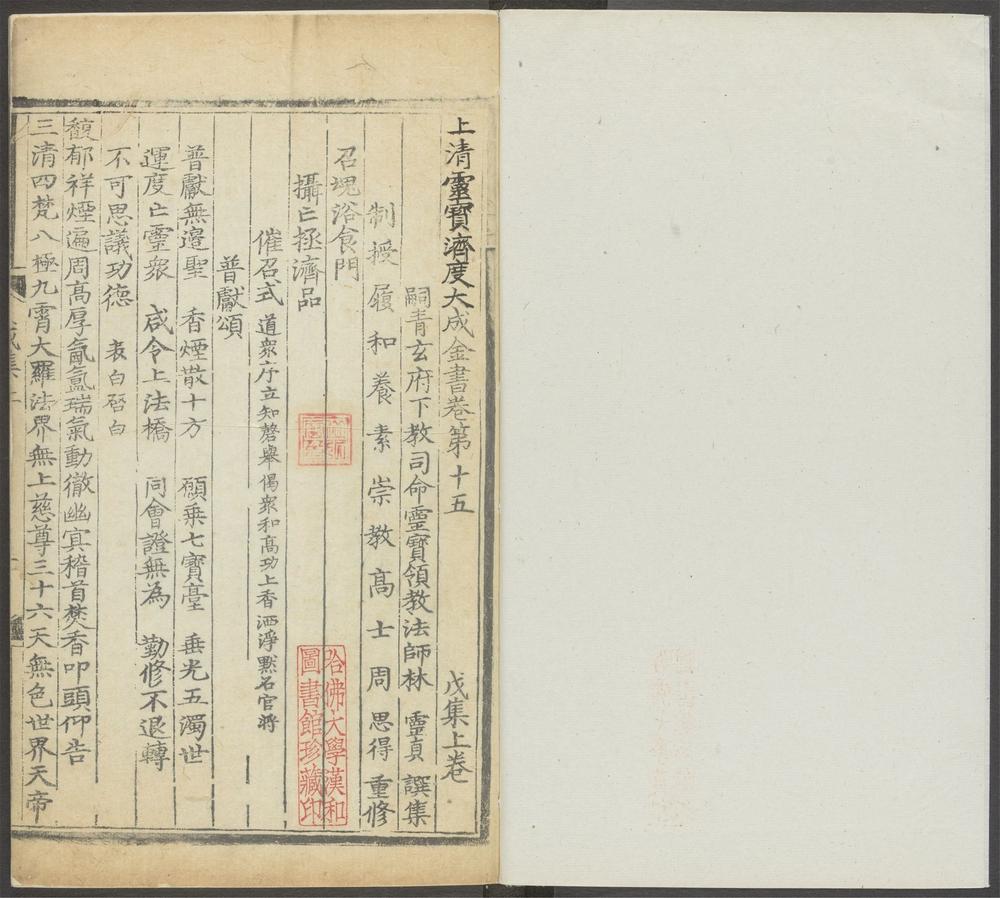 上清靈寶濟度大成金書卷第十五 戊集上卷
嗣青玄府下教司命靈寶領教法師林 靈貞 譔集
制授履和養素崇教高士周 思得 重修
召魂浴食門
攝亡拯濟品
催召式 道衆序立知磬舉偈衆和高功上香洒淨黙召官將
普獻頌
普獻無邉聖 香煙散十方 願乗七寳臺 垂光五濁世
運度亡靈衆 咸令上法橋 同會證無為 勤修不退轉
不可思議功徳 表白啓白
馥郁祥煙遍周髙厚氤氳瑞氣動徹幽㝠稽首焚香叩頭仰告
三清四梵八極九霄大羅法界無上慈尊三十六天無色世界天帝
哈佛大學漢和
圖書館珍藏印